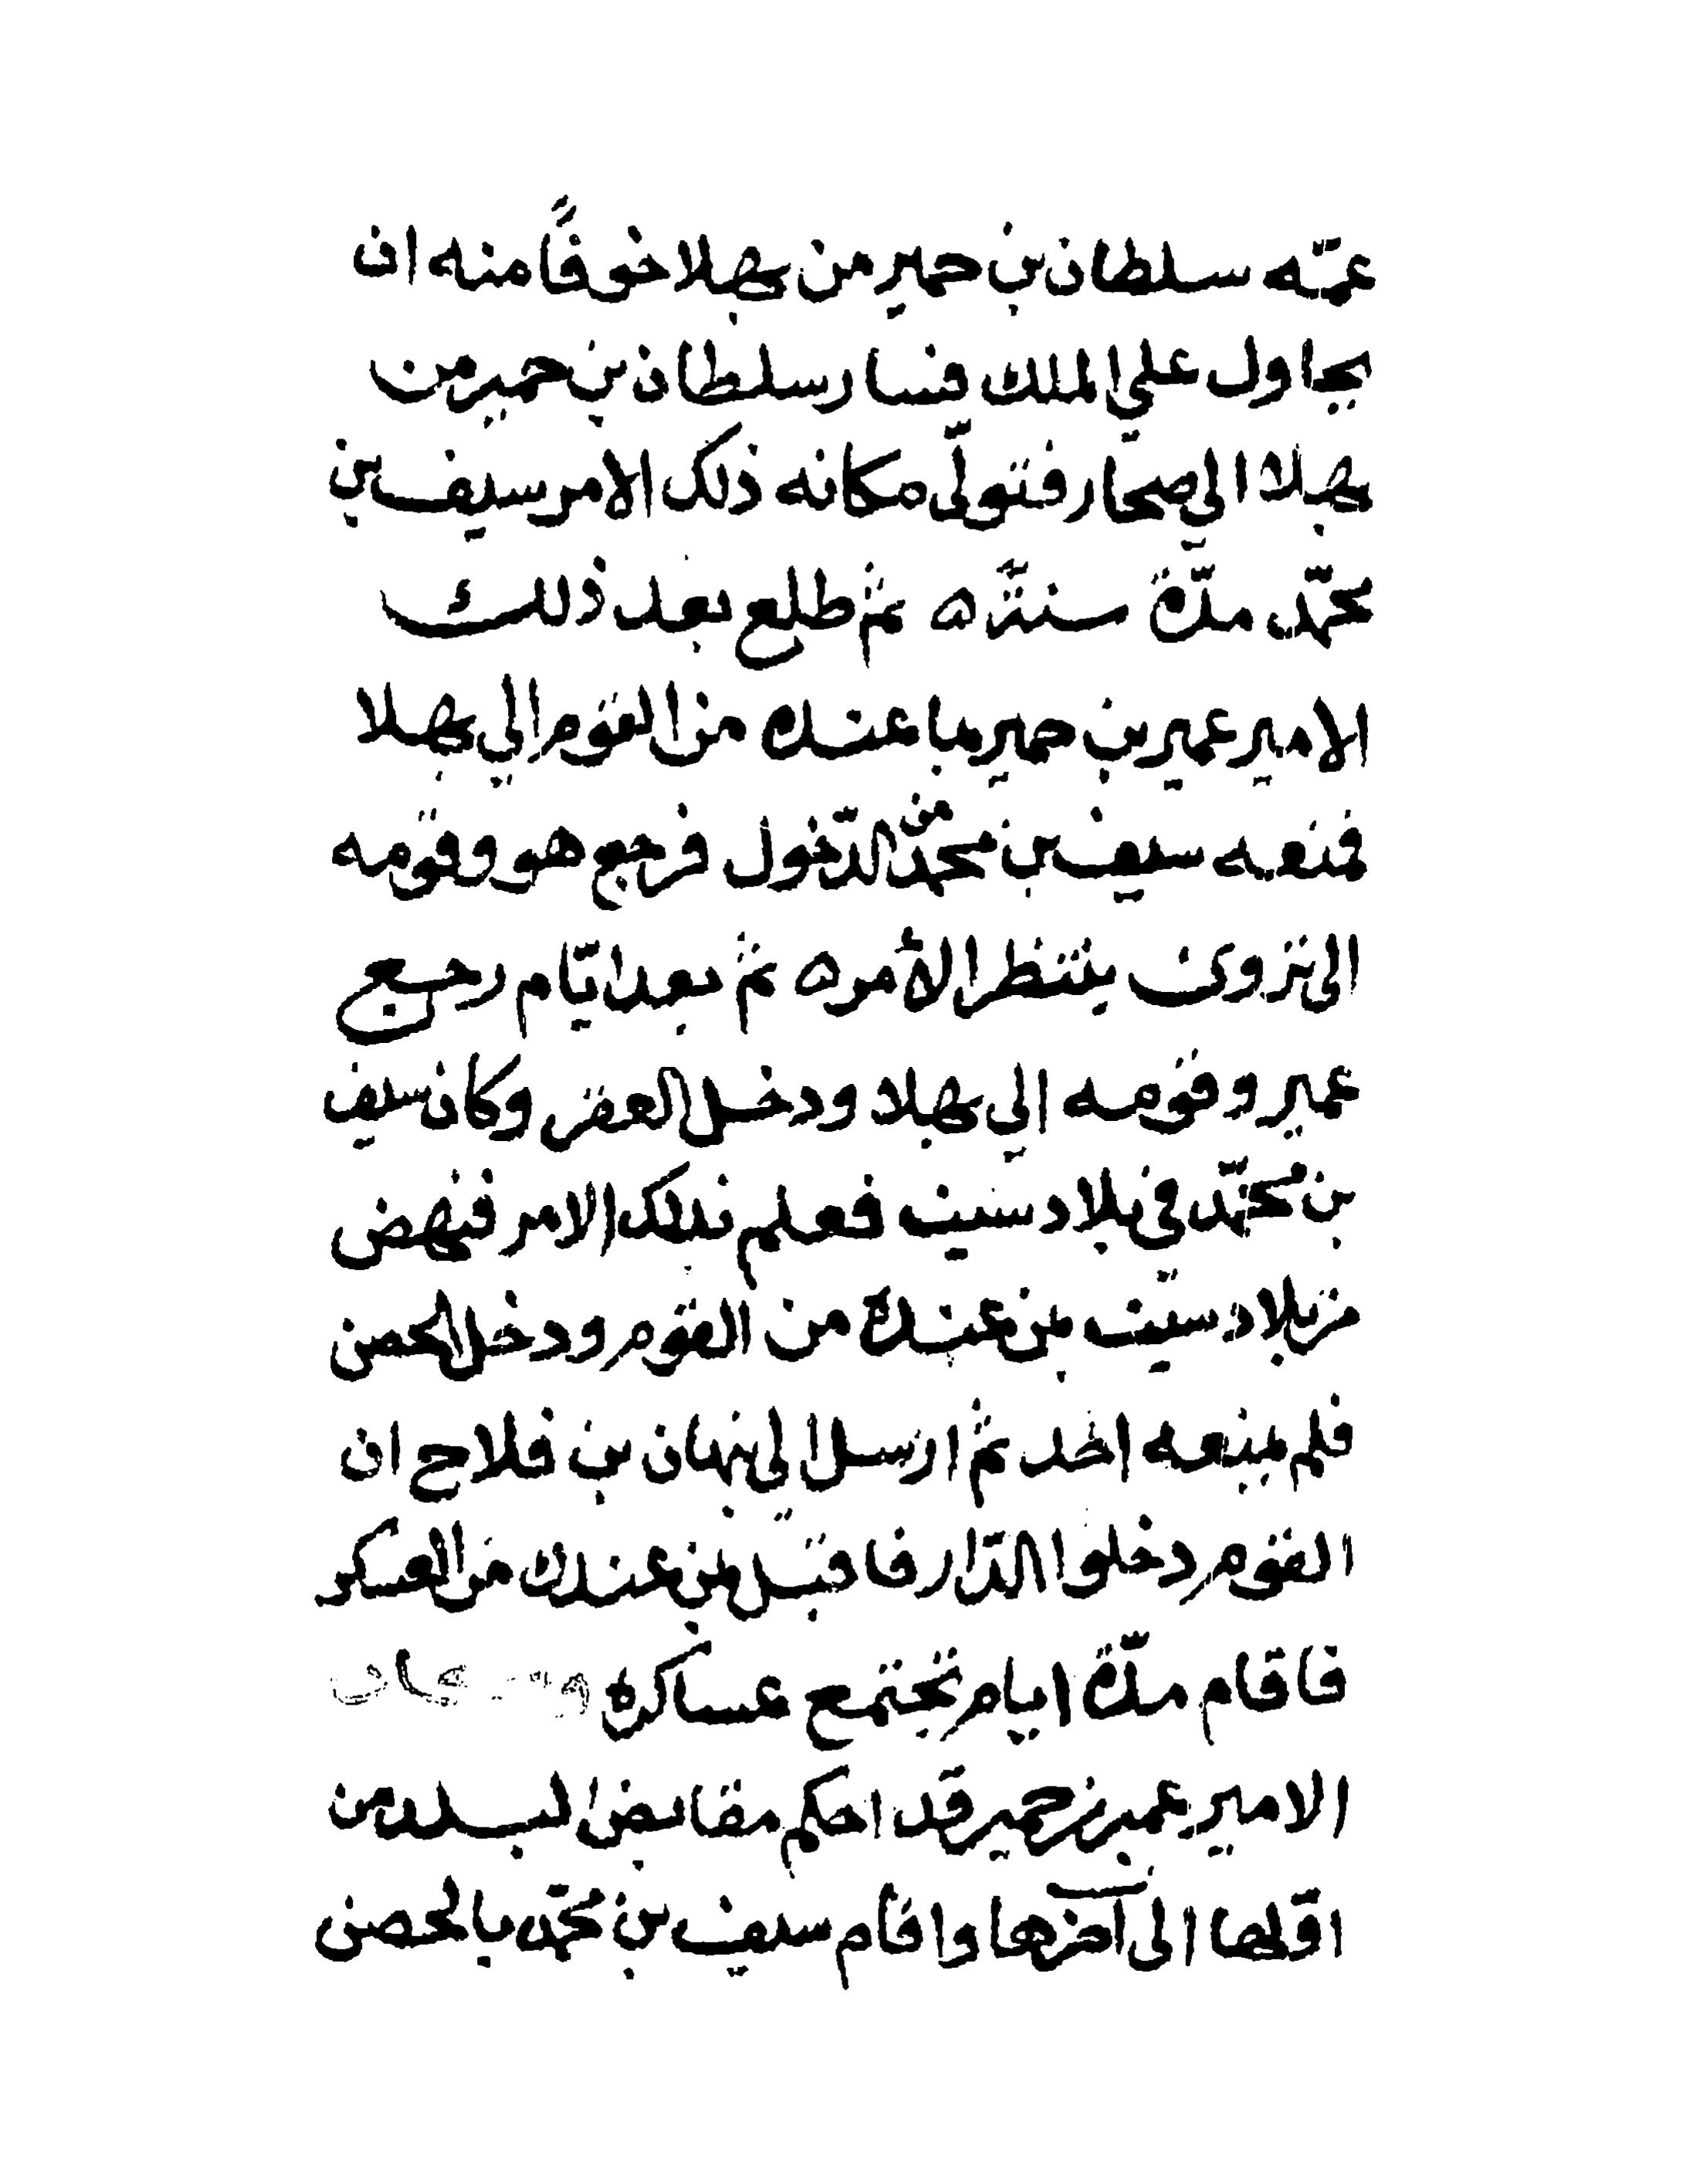 عمّه سلطان بن حمير من بهلا خوفًا منه ان
يحاول علي الملك فسار سلطان بن حمير من
بهلا الي صحار فتولّى مكانه ذلك الامر سيف بن
محمّد مدّة سنة ثم طلع بعد ذلك
الامير عمير بن حمير بما عنده من القوم الي بهلا
فمنعه سيف بن محمّد من الدّخول فرجع هو وقومه
الى نزوى ينتظر الأمر ثم بعد ايّام رجع
عمير وقومه الي بهلا ودخل العقر وكان سيف
بن محمّد في بلاد سيت فعلم بذلك الامر فنهض
من بلاد سيت بمن عنده من القوم ودخل الحصن
فلم يمنعه احد ثم ارسل الي نبهان بن فلاح ان
القوم دخلوا الدّار فاقبل بمن عنده من العسكر
فاقام مدّة ايام تجتمع عساكره وكان
الامير عمير بن حمير قد احكم مقابض البلد من
اوّلها الى آخرها واقام سيف بن محمّد بالحصن